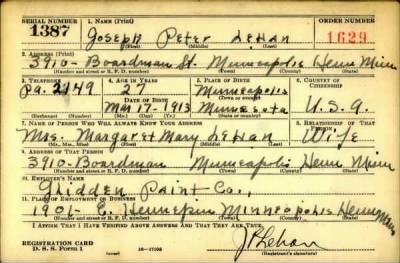 SERIAL NUMBER 1. NAME (Print) ORDER NUMBER
1387 JOSEPH PETER LEHAN 1629
(First) (Middle) (Last)
2. ADDRESS (Print)
3910 - Boardman St. Minneapolis Henn Minn
(Number and street or R. F. D. number) (Town) (County) (State)
3. TELEPHONE 4. AGE IN YEARS 5. PLACE OF BIRTH 6. COUNTRY OF CITIZENSHIP
Pa. 2949 27 Minneapolis
DATE OF BIRTH (Town or county)
Mar 17 - 1913 Minnesota U.S.A.
(Exchange) (Number) (Mo.) (Day) (Yr.) (State or country)
7. NAME OF PERSON WHO WILL ALWAYS KNOW YOUR ADDRESS 8. RELATIONSHIP OF THAT PERSON
Mrs. Margaret Mary Lehan Wife
(Mr., Mrs., Miss) (First) (Middle) (Last)
9. ADDRESS OF THAT PERSON
3910 - Boardman Minneapolis Henn Minn
(Number and street or R. F. D. number) (Town) (County) (State)
10. EMPLOYER'S NAME
Glidden Paint Co.,
11. PLACE OF EMPLOYMENT OR BUSINESS
1901 - E. Hennepin Minneapolis Henn Minn
(Number and street or R. F. D. number) (Town) (County) (State)
I AFFIRM THAT I HAVE VERIFIED ABOVE ANSWERS AND THAT THEY ARE TRUE.
REGISTRATION CARD
D. S. S. Form 1 16-17105 J P Lehan
(Registrant's signature)